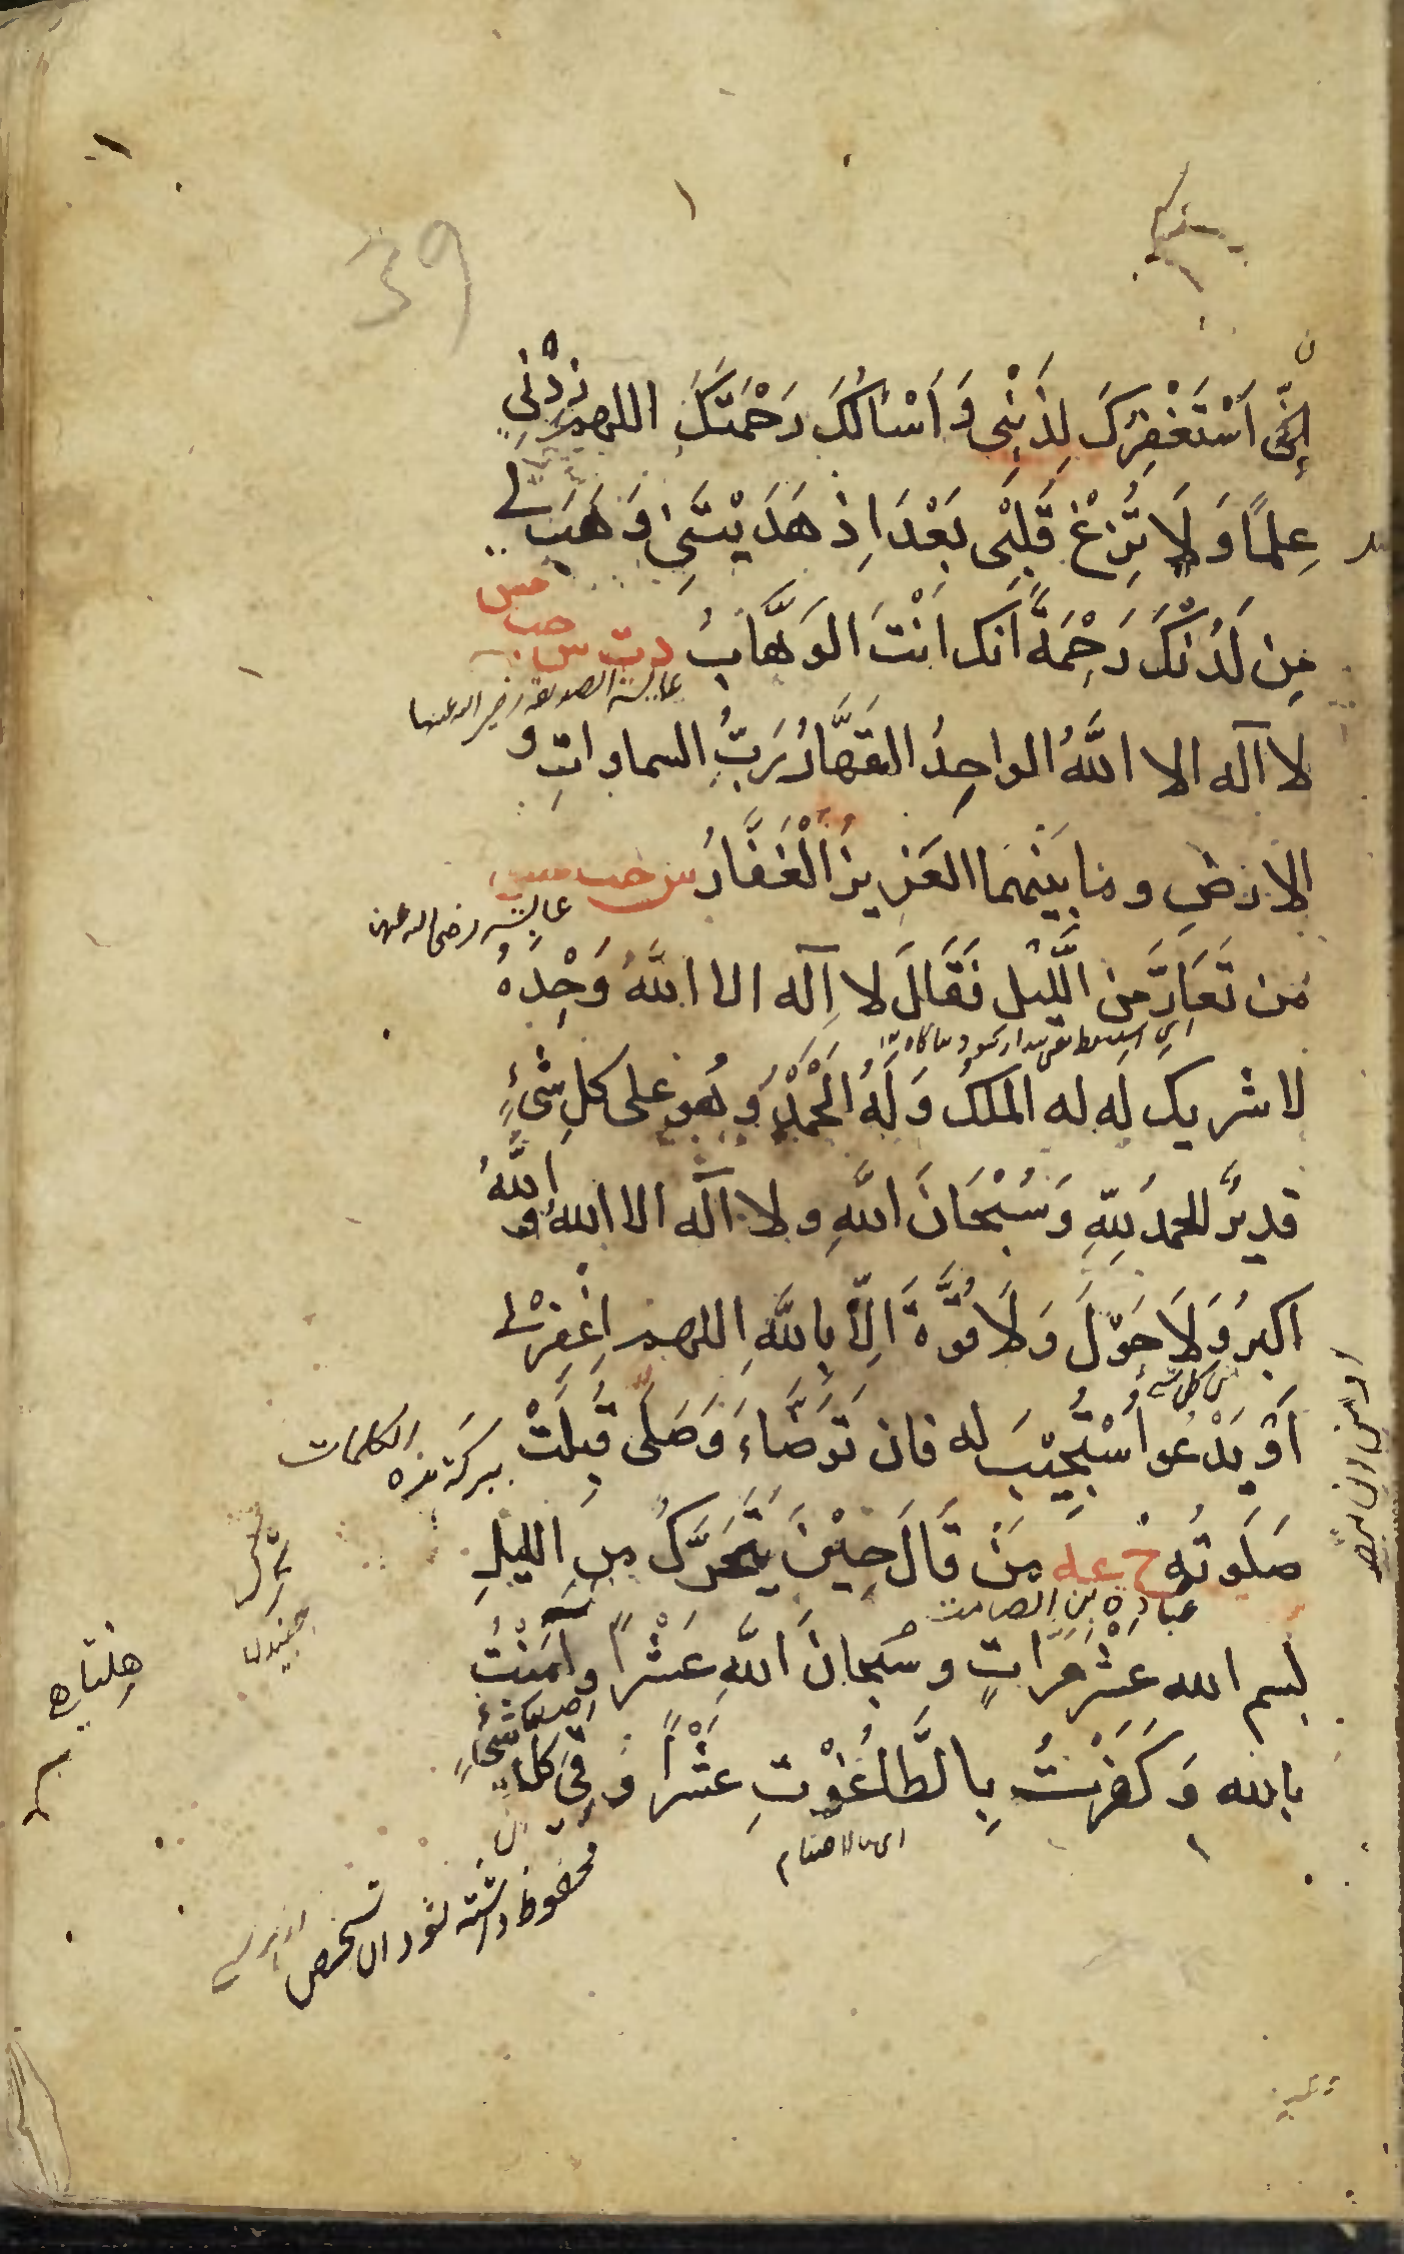 39
إِنِّى اَسْتَغْفِرُكَ لِذَنْبِى وَ اَسْاَلُكَ رَحْمَتَكَ اللهم زِدْنِي
عِلمًا وَ لَا تُزِغْ قَلْبِى بَعْدَ اِذ هَدَيْتَنِى وَ هَب لے
مِن لَدُنْكَ رَحْمَةً اَنك اَنْتَ الوَهَّابُ دت س حب مس
عايشة الصديقة رضى الله عنها
لا آله الا اللَّهُ الواحِدُ القَهَّارُ رَبُّ السماواتِ و
الارضِ وما بَيْنَهُمَا العَزِيزُ الْغَفَّارُ س حب مس
عايشه رضى الله عنها
مَن تَعَارَّ مَن اللَّيْل فَقَالَ لا اِلَه الا اللَّهُ وَحْدَهُ
لا شريك لَه له الملكُ وَ لَهُ الْحَمْدُ وُهو على كلِ شَئٍ
قديرٌ الحمدُ لِلّهِ وَ سُبْحَانَ اللَّهِ ولا آله الا اللهُ و اللَّهُ
اكبرُ وَ لَا حَوْلَ وَ لَا قُوَّةَ اِلّا بِاللَّهِ اللهم اِغْفِرْ لے
اَوْ يَدْعُوا اُسْتُجِيْبَ له فان تَوَضَّاءَ وَ صَلَّى قُبِلَتْ
ببركة هذه الكلمات
صَلَوتُه خ عه مَنْ قَالَ حِيْنَ يَتَحَرَّكُ مِن الليلِ
عبادة بن الصامت
بسم الله عَشْرَ مَرَّاتٍ و سُبحانَ اللَّهِ عَشْرًا و آمَنْتُ
بالله وَ كَفَرْتُ بِالطَّاغُوْتِ عَشْرًا وُقِىَ كل شَئٍ
اى بالاصنام
محفوظ داشته شود ان شخص از هر